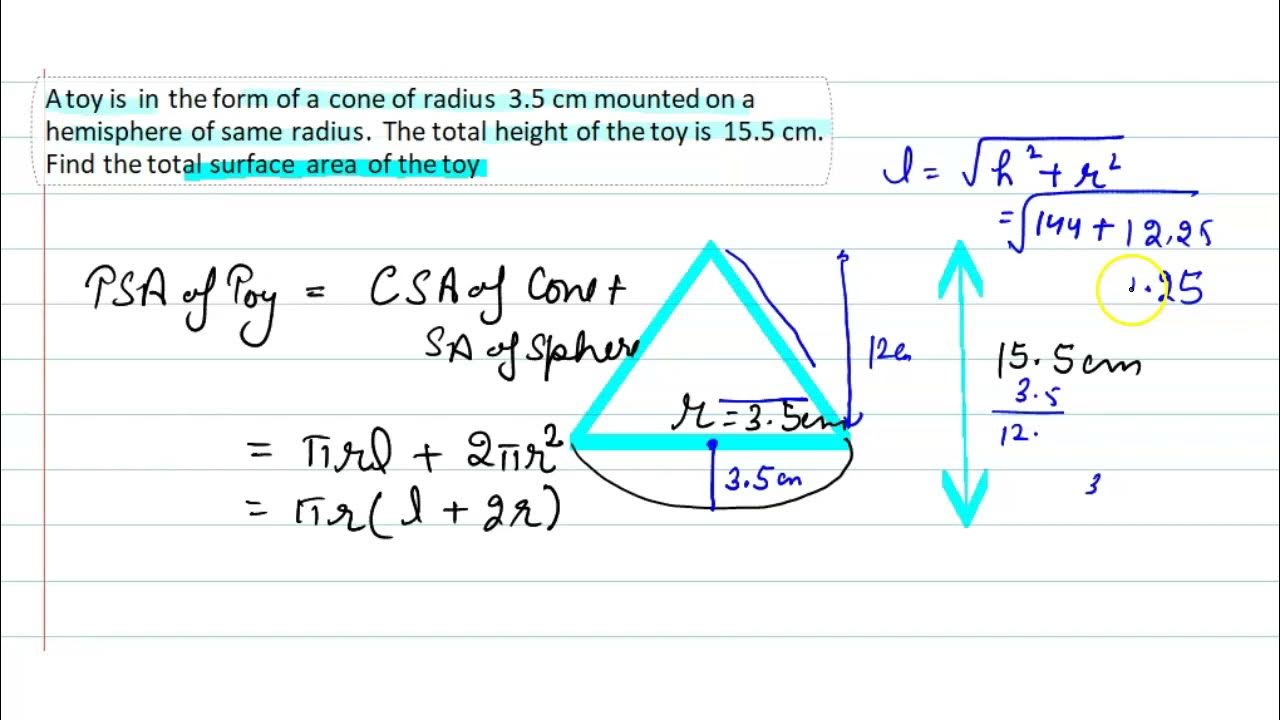 A toy is in the form of a cone of radius 3.5 cm mounted on a
hemisphere of same radius. The total height of the toy is 15.5 cm.
Find the total surface area of the toy
l = √h² + r²
= √144 + 12.25
1.25
TSA of Toy = CSA of Cone +
SA of Sphere
= πrl + 2πr²
= πr(l + 2r)
r = 3.5cm
3.5 cm
12cm
15.5cm
3.5
12.
3